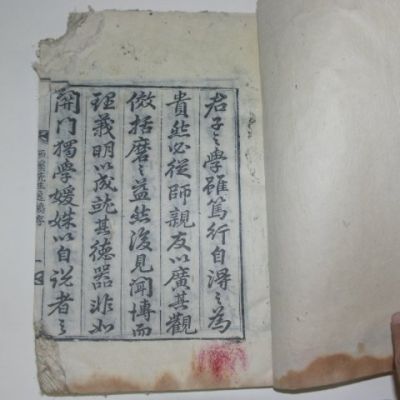 君子之學雖篤行自得之為
貴然必從師親友以廣其觀
倣括磨之益然後見聞博而
理義明以成就其德器非如
開門獨學嫒姝以自説者之